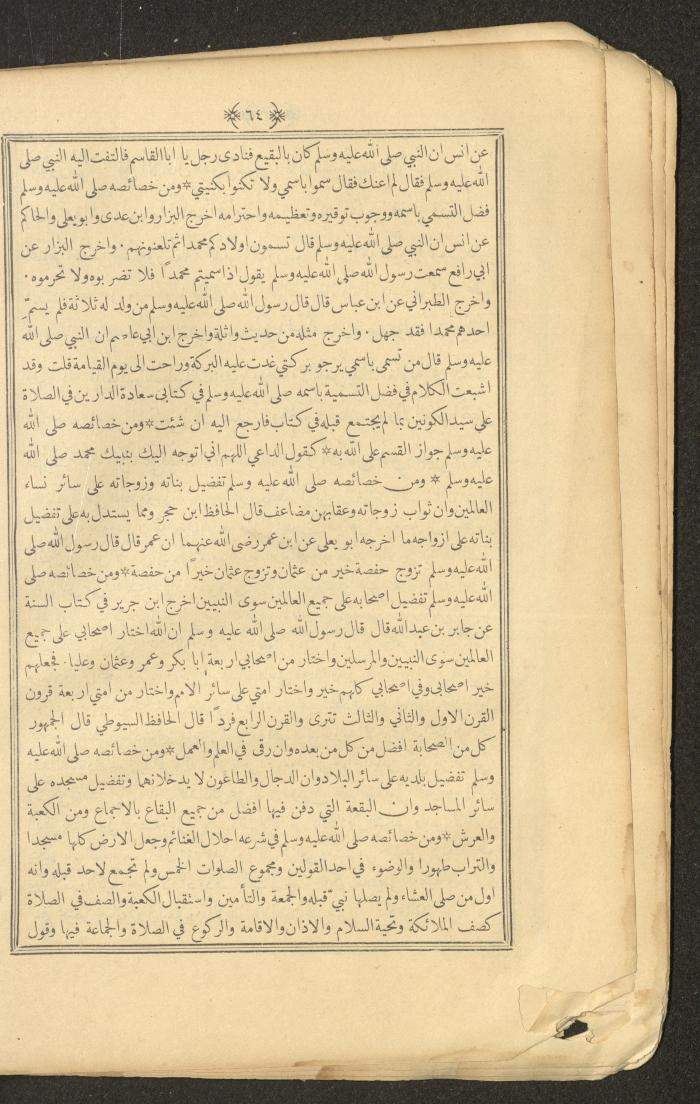 ٦٤
عن انس ان النبي صلى الله عليه وسلم كان بالبقيع فنادى رجل يا ابا القاسم فالتفت اليه النبي صلى
الله عليه وسلم فقال لم اعنك فقال سموا باسمي ولا تكنوا بكنيتي * ومن خصائصه صلى الله عليه وسلم
فضل التسمي باسمه ووجوب توقيره وتعظيمه واحترامه اخرج البزار وابن عدى وابو يعلى والحاكم
عن انس ان النبي صلى الله عليه وسلم قال تسمون اولادكم محمدا ثم تلعنونهم . واخرج البزار عن
ابي رافع سمعت رسول الله صلى الله عليه وسلم يقول اذا سميتم محمدًا فلا تضربوه ولا تحرموه .
واخرج الطبراني عن ابن عباس قال قال رسول الله صلى الله عليه وسلم من ولد له ثلاثة فلم يسمّ
احدهم محمدا فقد جهل . واخرج مثله من حديث واثلة واخرج ابن ابي عاصم ان النبي صلى الله
عليه وسلم قال من تسمى باسمي يرجو بركتي غدت عليه البركة وراحت الى يوم القيامة قلت وقد
اشبعت الكلام في فضل التسمية باسمه صلى الله عليه وسلم في كتابى سعادة الدارين في الصلاة
على سيد الكونين بما لم يجتمع قبله في كتاب فارجع اليه ان شئت * ومن خصائصه صلى الله
عليه وسلم جواز القسم على الله به * كقول الداعي اللهم اني اتوجه اليك بنبيك محمد صلى الله
عليه وسلم * ومن خصائصه صلى الله عليه وسلم تفضيل بناته وزوجاته على سائر نساء
العالمين وان ثواب زوجاته وعقابهن مضاعف قال الحافظ ابن حجر ومما يستدل به على تفضيل
بناته على ازواجه ما اخرجه ابو يعلى عن ابن عمر رضى الله عنهما ان عمر قال قال رسول الله صلى
الله عليه وسلم تزوج حفصة خير من عثمان وتزوج عثمان خيرًا من حفصة * ومن خصائصه صلى
الله عليه وسلم تفضيل اصحابه على جميع العالمين سوى النبيين اخرج ابن جرير في كتاب السنة
عن جابر بن عبد الله قال قال رسول الله صلى الله عليه وسلم ان الله اختار اصحابي على جميع
العالمين سوى النبيين والمرسلين واختار من اصحابي اربعة ابا بكر وعمر وعثمان وعليا . فجعلهم
خير اصحابى وفي اصحابي كلهم خير واختار امتي على سائر الامم واختار من امتي اربعة قرون
القرن الاول والثاني والثالث تترى والقرن الرابع فردًا قال الحافظ السيوطي قال الجمهور
كل من الصحابة افضل من كل من بعده وان رقى في العلم والعمل * ومن خصائصه صلى الله عليه
وسلم تفضيل بلديه على سائر البلاد وان الدجال والطاعون لا يدخلانها وتفضيل مسجده على
سائر المساجد وان البقعة التي دفن فيها افضل من جميع البقاع بالاجماع ومن الكعبة
والعرش * ومن خصائصه صلى الله عليه وسلم في شرعه احلال الغنائم وجعل الارض كلها مسجدا
والتراب طهورا والوضوء في احد القولين ومجموع الصلوات الخمس ولم تجمع لاحد قبله وانه
اول من صلى العشاء ولم يصلها نبيّ قبله والجمعة والتأمين واستقبال الكعبة والصف في الصلاة
كصف الملائكة وتحية السلام والاذان والاقامة والركوع في الصلاة والجماعة فيها وقول